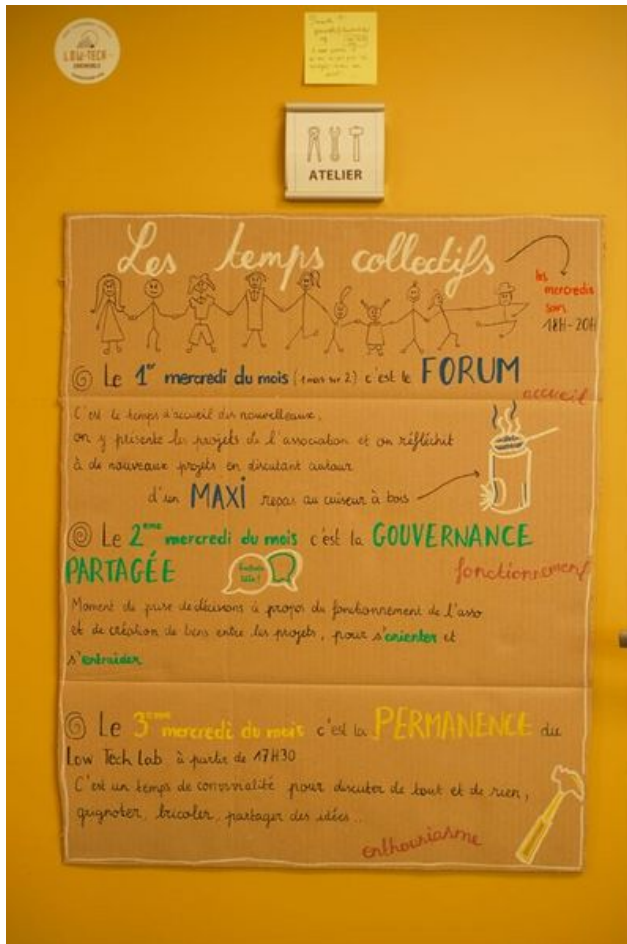 LOW-TECH
ATELIER
Les temps collectifs
les
mercredis
soirs
18H-20H
Le 1er mercredi du mois (1 mois sur 2) c'est le FORUM
accueil
C'est le temps d'accueil des nouvelleaux,
on y présente les projets de l'association et on réfléchit
à de nouveaux projets en discutant autour
d'un MAXI repas au cuiseur à bois
Le 2ème mercredi du mois c'est la GOUVERNANCE
PARTAGÉE
fonctionnement
Moment de prise de décisions à propos du fonctionnement de l'asso
et de création de liens entre les projets, pour s'orienter et
s'entraider
Le 3ème mercredi du mois c'est la PERMANENCE du
Low Tech Lab à partir de 17H30
C'est un temps de convivialité pour discuter de tout et de rien,
grignoter, bricoler, partager des idées...
enthousiasme